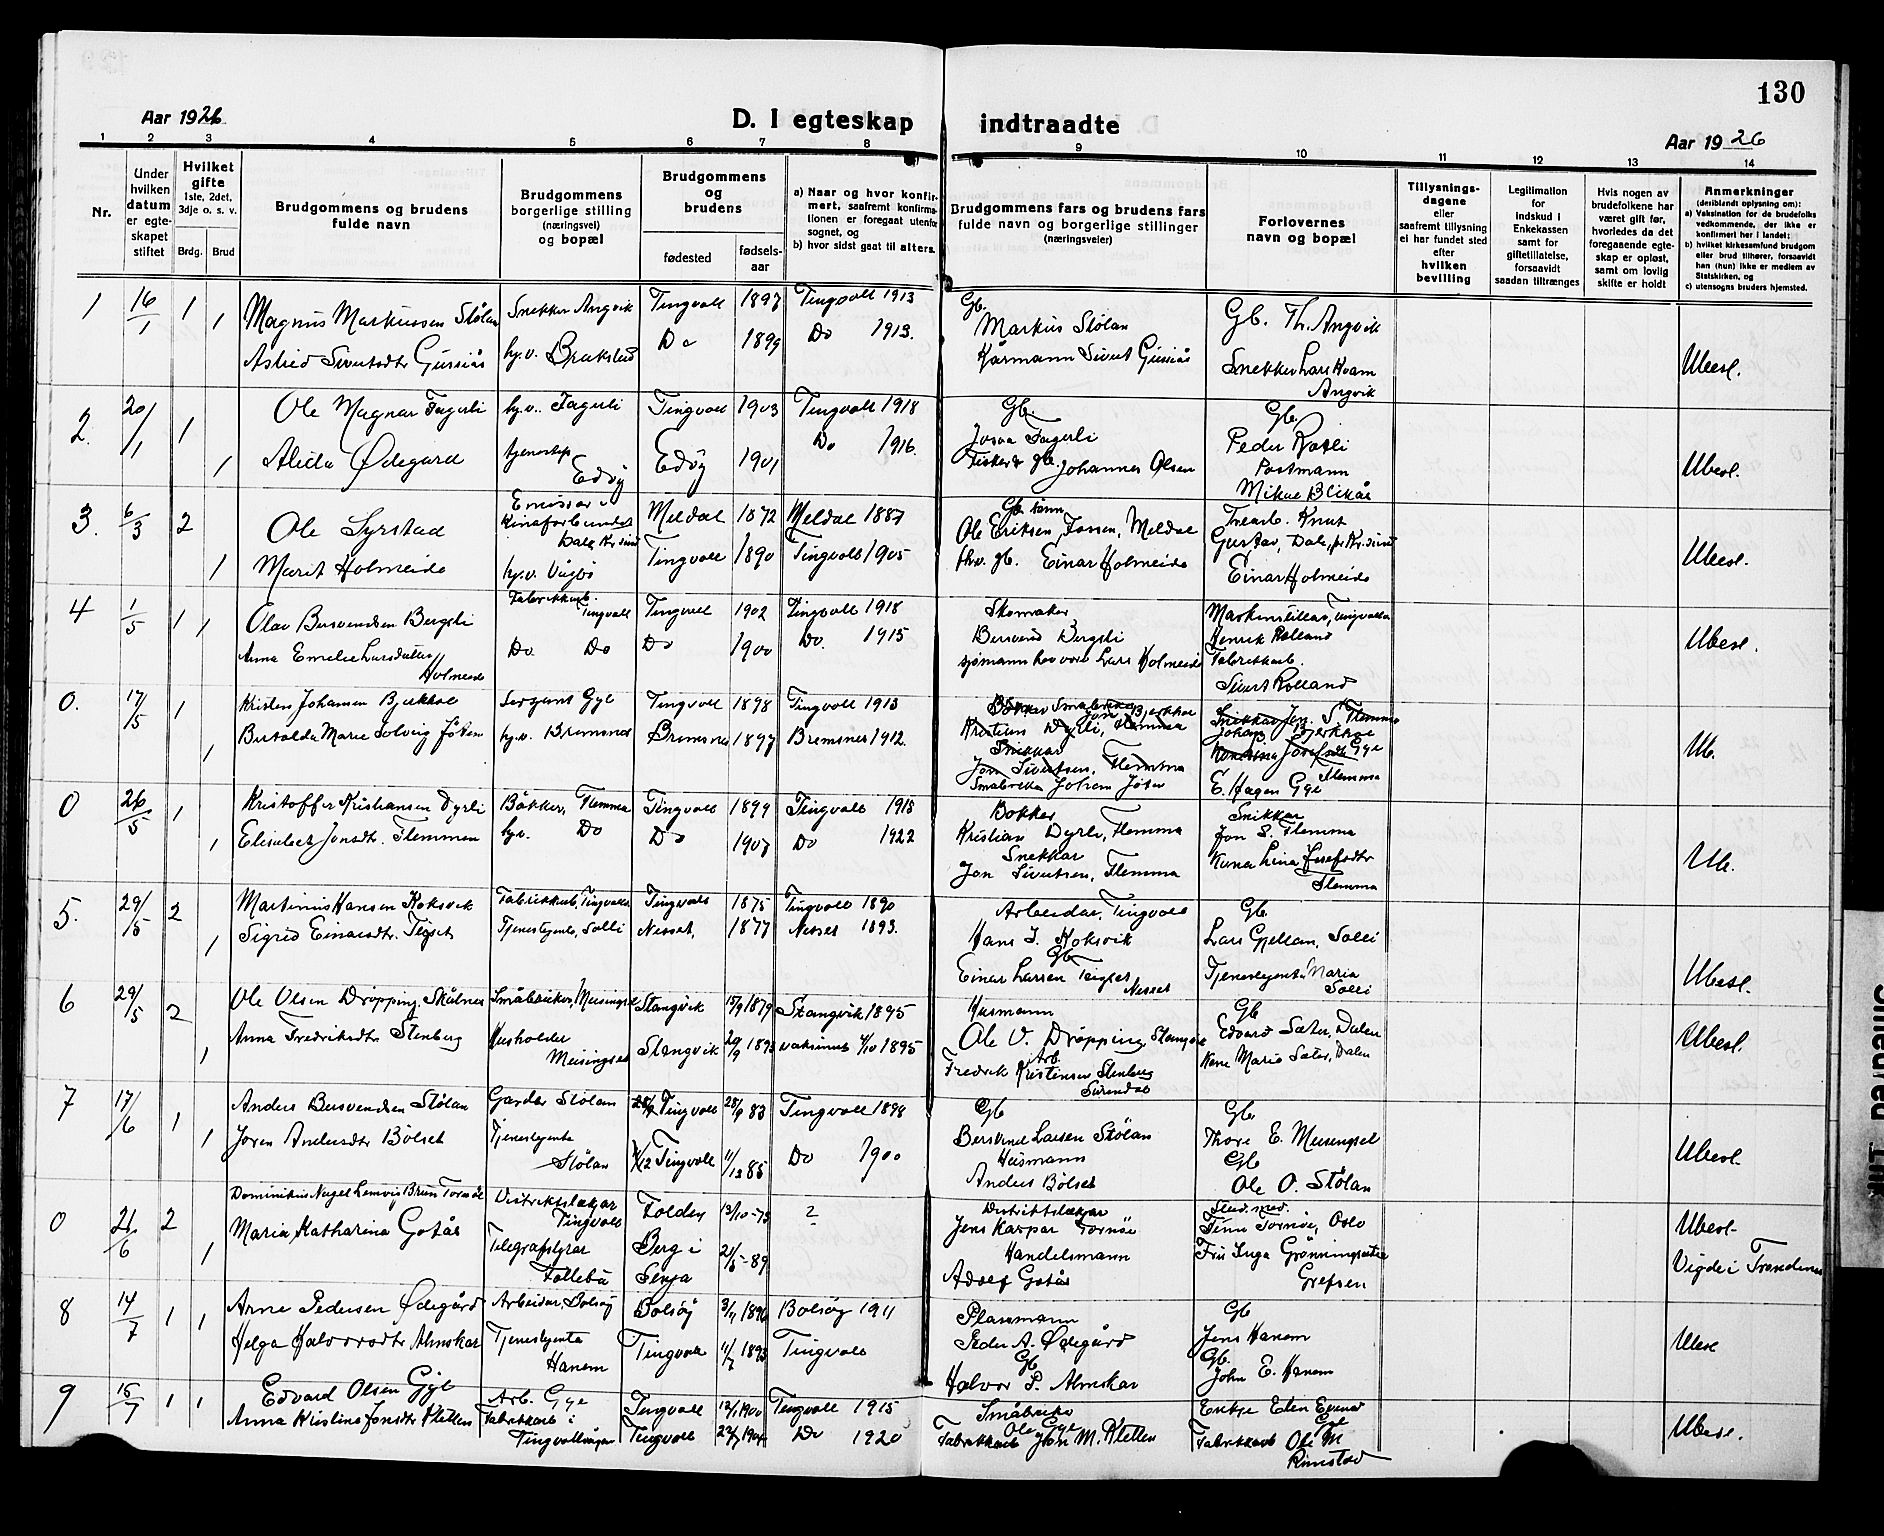 130
Aar 1926
D. I egteskap indtraadte
Aar 1926
1 2 3 4 5 6 7 8 9 10 11 12 13 14
Nr.
Under hvilken datum er egteskapet stiftet
Hvilket gifte 1ste, 2det, 3dje o. s. v.
Brdg. Brud
Brudgommens og brudens fulde navn
Brudgommens borgerlige stilling (næringsvei) og bopæl
Brudgommens og brudens
fødested
fødselsaar
a) Naar og hvor konfirmert, saafremt konfirmationen er foregaat utenfor sognet, og
b) hvor sidst gaat til alters.
Brudgommens fars og brudens fars fulde navn og borgerlige stillinger (næringsveier)
Forlovernes navn og bopæl
Tillysningsdagene eller saafremt tillysning ei har fundet sted efter hvilken bevilling
Legitimation for indskud i Enkekassen samt for giftetillatelse, forsaavidt saadan tiltrænges
Hvis nogen av brudefolkene har været gift før, hvorledes da det foregaaende egteskap er opløst, samt om lovlig skifte er holdt
Anmerkninger (deriblandt oplysning om):
a) Vaksination for de brudefolks vedkommende, der ikke er konfirmert her i landet;
b) hvilket kirkesamfund brudgom eller brud tilhører, forsaavidt han (hun) ikke er medlem av Statskirken, og
c) utensogns bruders hjemsted.
1 16/1 1 Magnus Markussen Stølan Snekker Angvik Tingvoll 1897 Tingvoll 1913 Gb. Markus Stølan Gb. Th. Angvik
1 Astrid Sivertsdtr Gussiås hj.v. Brakstad Do 1899 Do 1913. Kårmann Sivert Gussiås Snekker Lars Hoem Angvik Ubesl.
2. 20/1 1 Ole Magnar Fagerli hj.v. Fagerli Tingvoll 1903 Tingvoll 1918 Gb. Fagerli Gb. Peder
1 Alida Ødegård tjenestep. Edøy Edøy 1901 Do 1916. Fisker & gb. Johannes Olsen Postmann Mikal Blikås Ubesl.
3. 6/3 2 Ole Syrstad Emissær i Kinaforbundet Dale Kr.sund Meldal 1872 Meldal 1887 Ole Eriksen Meldal Knut Gustav, Dale, pr Kr.sund
1 Marit Holmeide hj.v. Vågbø Tingvoll 1890 Tingvoll 1905 fhv. gb. Einar Holmeide Einar Holmeide Ubesl.
4 1/5 1 1 Olav Bersvendsen Bergsli Fabrikkarb. Tingvoll Tingvoll 1902 Tingvoll 1918 Skomaker Bersvend Bergsli Henrik Rolland
Anna Emelie Larsdatter Holmeide Do Do Do 1900 Do. 1915 Lars Holmeide Fabrikkarb. Sivert Rolland Ubesl.
0. 17/5 1 Kristen Johansen Bjerkhoe Sersjant Gyl Tingvoll 1898 Tingvoll 1913
1 Marie Solveig hj.v. Bremsnes Bremsnes 1897 Bremsnes 1912. Johan E. Hagen Gyl Ub.
0 26/5 1 Kristoffer Kristiansen Dyrli Bøkker, Flemma Tingvoll 1899 Tingvoll 1915 Bøkker Kristian Dyrli, Flemma Snikkar Jon S. Flemma
1 Elisabet Jonsdtr. Flemmen hj.v. Do Do 1907 Do 1922 Snekkar Jon Sivertsen, Flemma Kona Lina Josefsdtr Flemma Ub.
5. 29/5 2 Martinus Hansen Koksvik Fabrikkarb, Tingvoll Tingvoll 1875 Tingvoll 1890 Arbeidar, Tingvoll Hans J. Koksvik Gb Lars Gjellan, Solli
1 Sigrid Einarsdtr. Tejset Tjenestjente, Solli Nesset, 1877 Nesset 1893. Gb Einar Larsen Teigset Nesset Tjenestjente Maria Solli Ubesl.
6 29/5 2 Ole Olsen Drøpping, Skålnes Småbruker, Meisingset Stangvik 15/9 1879 Stangvik 1895 Husmann Ole O. Drøpping Stangvik Gb Edvard Sæter, Dalen
1 Anna Fredriksdtr Stenberg Husholder Meisingset Stangvik 29/9 1893 vaksinert 1/10 1895 Arb. Fredrik Kristensen Stenberg Surendal Kone Marie Sæter, Dalen Ubesl.
7 17/6 1 Anders Bersvendsen Stølan Gardbr Stølan Tingvoll 28/9 83 Tingvoll 1898 Gb Bersvend Larsen Stølan Gb Thore E. Meisingset
1 Joren Andersdtr Bølset Tjenestjente Stølan Tingvoll 11/12 85 Do 1900 Husmann Anders Bølset Gb Ole O. Stølan Ubesl.
0 21/6 2 Dominikus Nagel Lemvig Brun Tornøe Distriktslækjar Tingvoll Folden 13/10-75 ? Distriktslækjar Jens Kaspar Tornøe Stud. med. Tornøe, Oslo Ubesl.
1 Maria Katharina Gotås Telegrafstyrar Follebu Berg i Senja 21/5-89 Handelsmann Adolf Gotås Fru Inga Grønningsæter Grefsen Vigde i Trondenes
8 14/7 1 1 Arne Pedersen Ødegård Arbeidar, Bolsøy Bolsøy 3/11 1896 Bolsøy 1911 Plassmann Peder A. Ødegård Gb Jens Hanem
Helga Halvorsdtr Almskar Tjenestjenta Hanem Tingvoll 11/7 1893 Tingvoll Gb Halvor P. Almskar Gb. John E. Hanem Ubesl
9 15/7 1 1 Edvard Olsen Gyl Arb. Gyl Tingvoll 12/1 1900 Tingvoll 1915 Småbruker Ole Gyl Enkje Elen Gyl
Anna Kristine Jonsdtr Kletten Fabrikkarb i Tingvollvågen Tingvoll 1904 Do 1920 Fabrikkarb Jon M. Kletten Fabrikkarb Ole M Rimstad Ubesl.